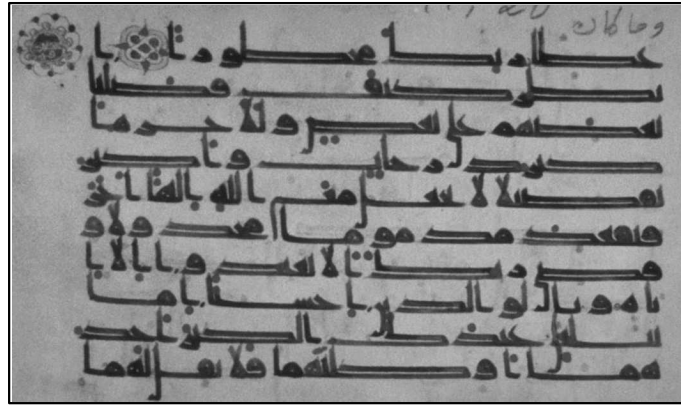 وما كان
عطا ربك محظورا ا
نظر كيف فضلنا
بعضهم على بعض وللاخرة ا
كبر درجت واكبر
تفضيلا لا تجعل مع الله الها اخر
فتقعد مذموما مخذولا و
قضى ربك الا تعبدوا الا ا
ياه وبالولدين احسنا اما
يبلغن عندك الكبر احد
هما او كلهما فلا تقل لهما